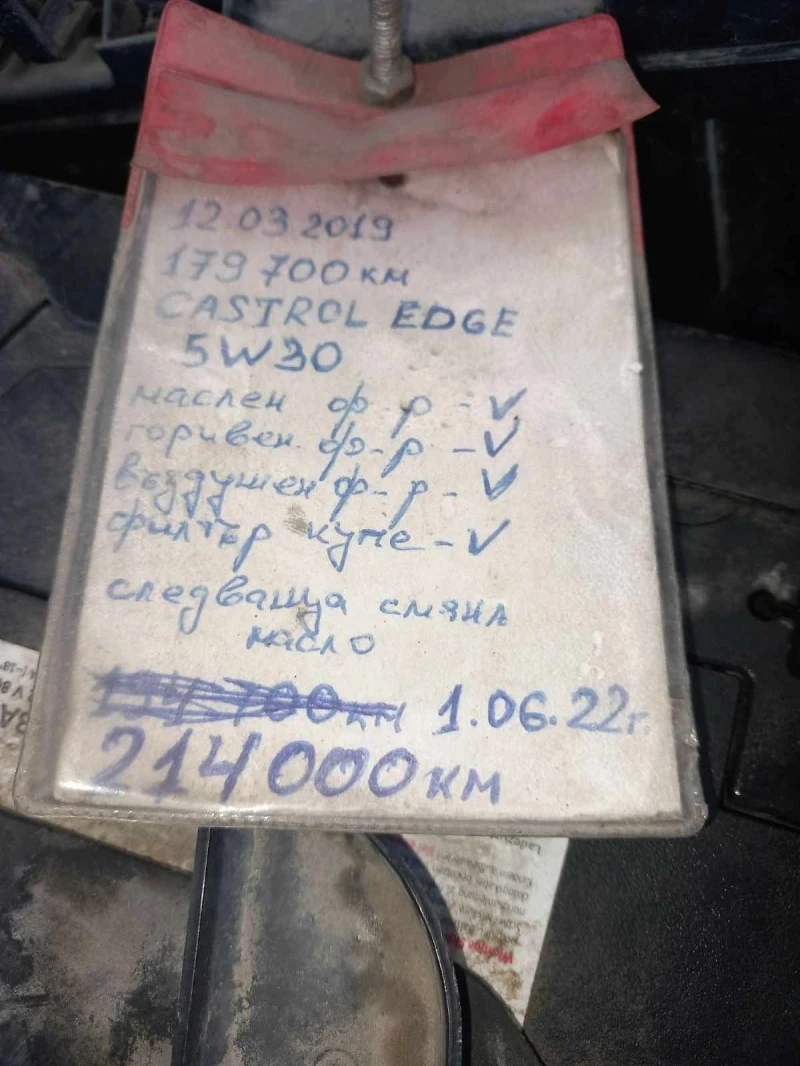 12 03 2019
179 700 км
CASTROL EDGE
5W30
маслен ф-р - V
горивен ф-р - V
въздушен ф-р - V
филтър купе - V
следваща смяна
масло
1.06.22г.
214 000 км